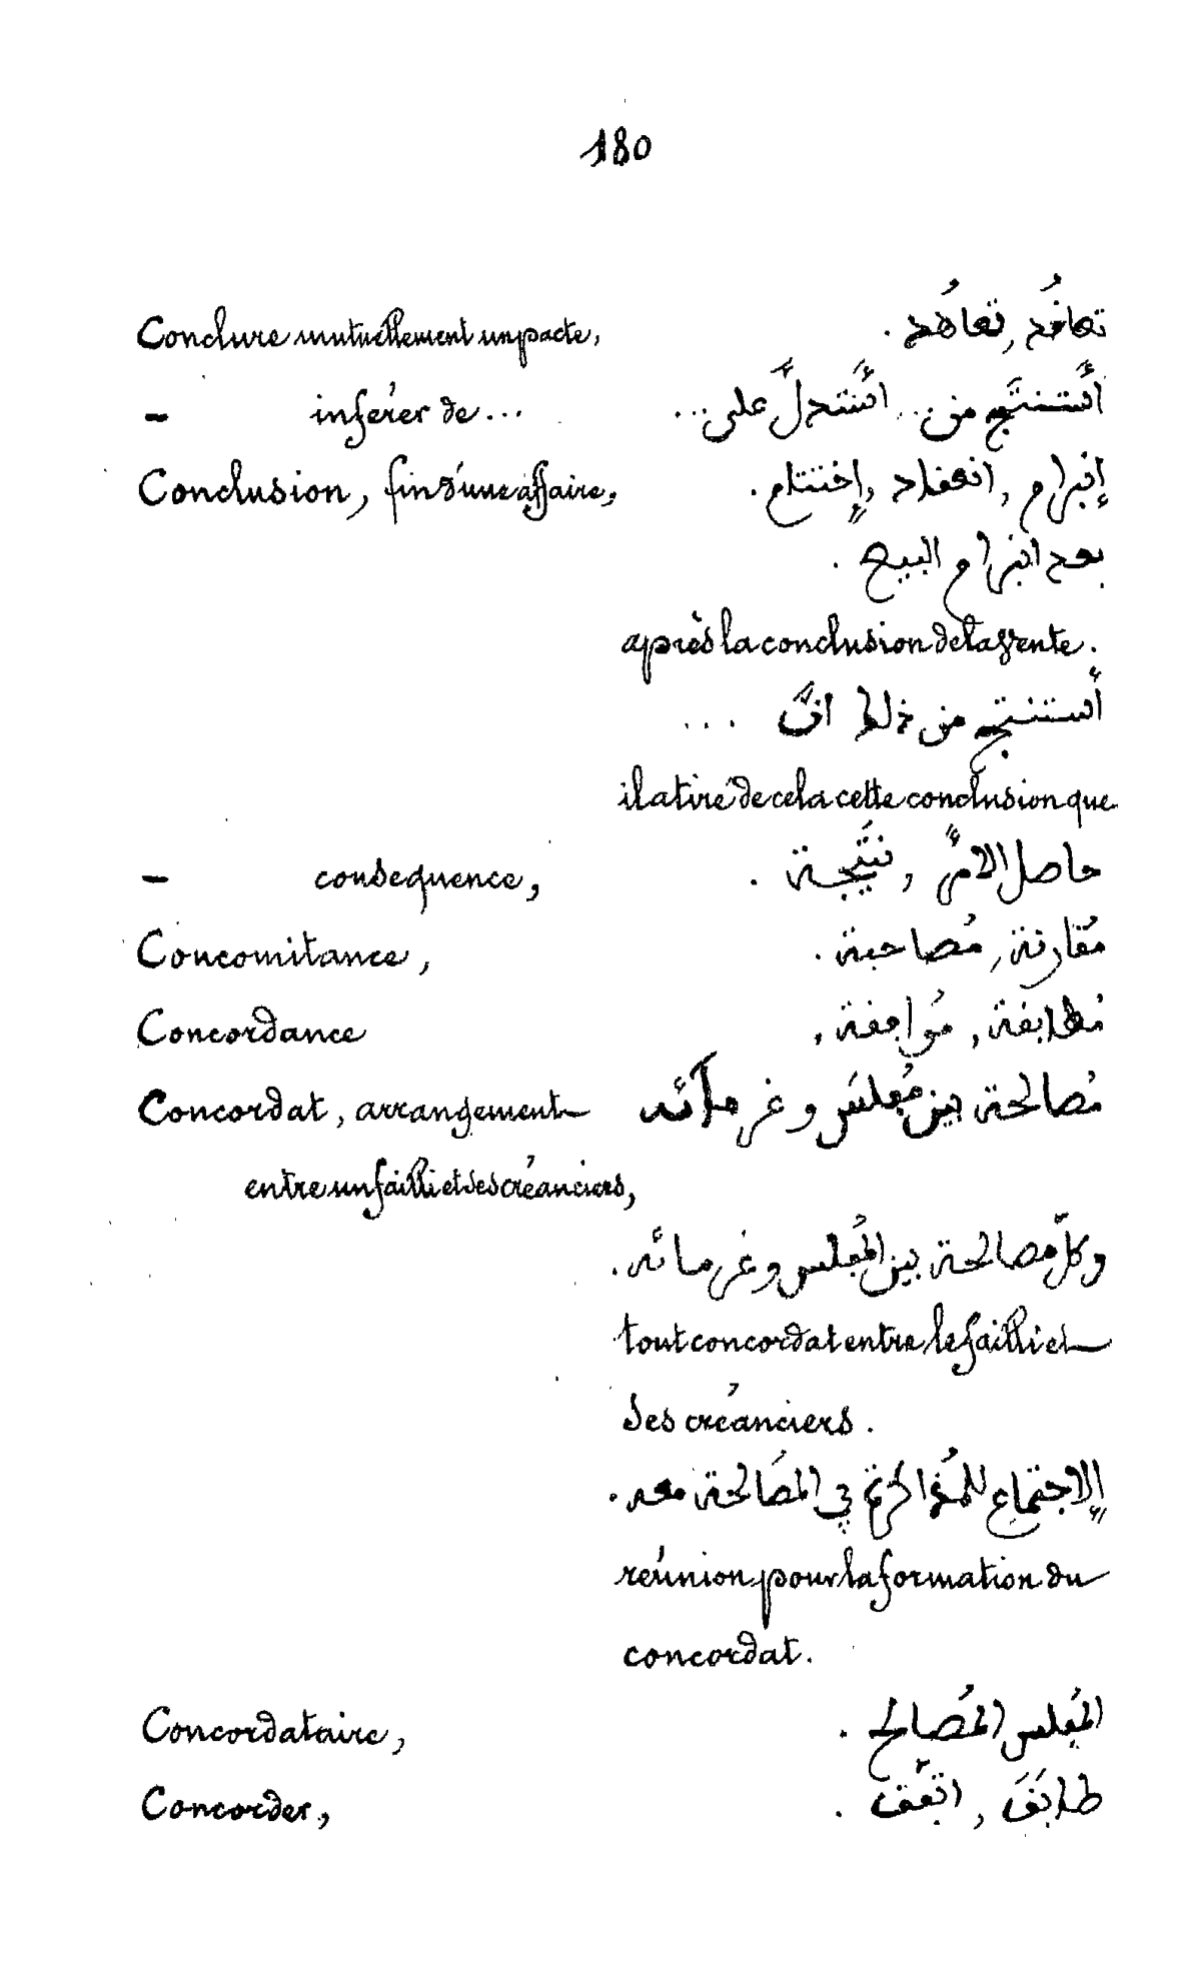 180
Conclure mutuellement un pacte, تعاقُد, تعاهُد.
— inférer de... اَسْتنتَج من... اَسْتدلَّ على...
Conclusion, fin d'une affaire, إبرام, انعقاد, إختتام.
بعد ابرام البيع.
après la conclusion de la vente.
اَستنتج من ذلك انّ ...
il a tiré de cela cette conclusion que
— consequence, حاصل الامر, نتيجة.
Concomitance, مُقارنة, مُصاحبة.
Concordance مُطابقة, مُوافقة,
Concordat, arrangement مُصالحة بين مُفلس وغرمآئه
entre un failli et ses créanciers,
وكلّ مصالحة بين المُفلس وغرمائه.
tout concordat entre le failli et
ses créanciers.
الاِجتماع للمُذاكرة في المُصَالحة معه.
réunion pour la formation du
concordat.
Concordataire, المُفلس المُصالح.
Concorder, طابَقَ, اتّفق.